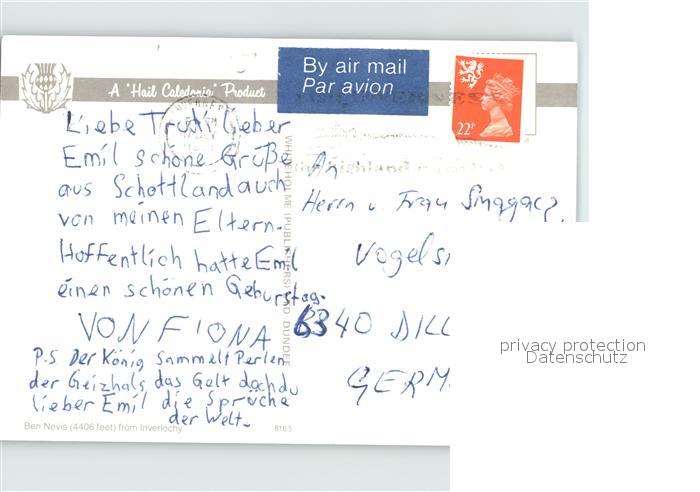 By air mail
Par avion
A "Hail Caledonia" Product
22P
Liebe Trudi lieber
Emil schöne Grüße
aus Schottland auch
von meinen Eltern.
Hoffentlich hatte Emil
einen schönen Geburstag.
VON FIONA
P.S. Der König Sammelt Perlen
der Geizhals das Gelt doch du
lieber Emil die Sprüche
der Welt.
Ben Nevis (4406 feet) from Inverlochy
8165
WHITEHOLME (PUBLISHERS) LTD. DUNDEE
An
Herrn u. Frau
Vogels
6340 DILL
GERM
privacy protection
Datenschutz